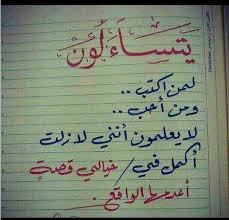 يتساءلون
لمن اكتب ..
ومن أحب ..
لا يعلمون أنني لازلت
أكمل في / خيالي قصةٍ
أعدمها الواقع .